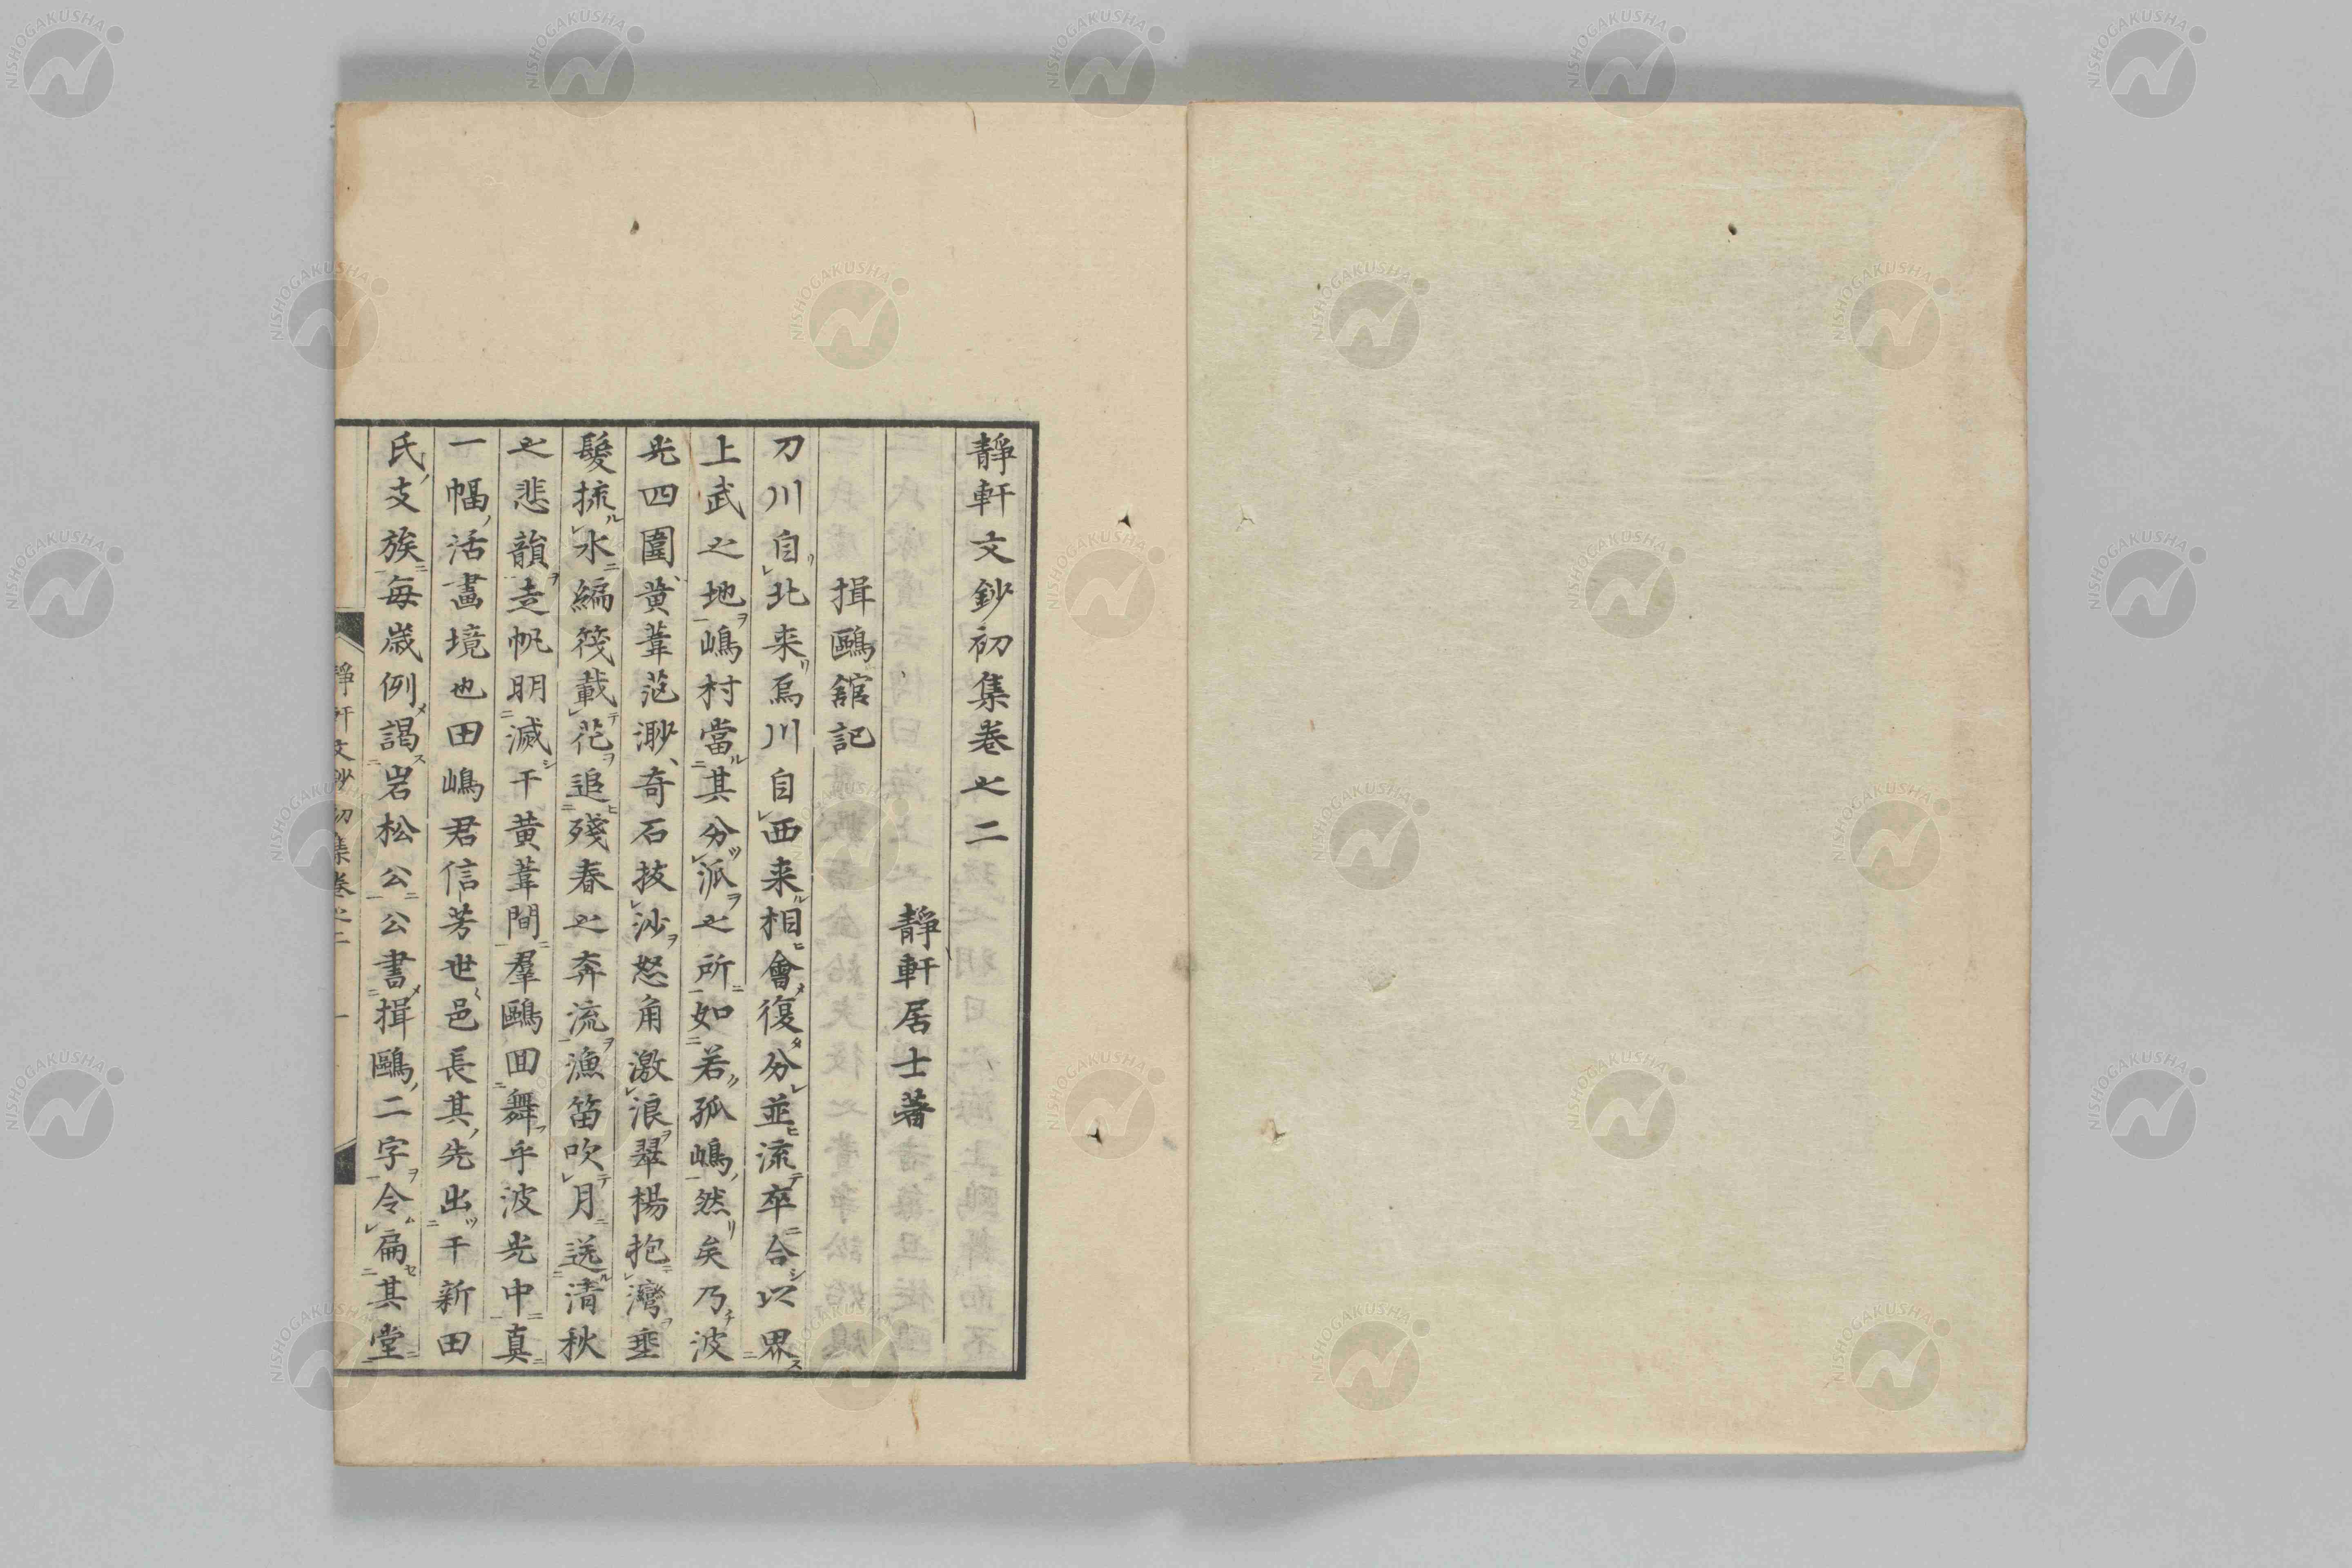 靜軒文鈔初集巻之二
靜軒居士著
揖鷗舘記
刀川自北来烏川自西来相會復分並流卒合以界
上武之地嶋村當其分派之所如若孤嶋然矣乃波
光四圍黄葦茫渺奇石抜沙怒角激浪翠楊抱灣垂
髮梳水編筏載花追殘春之奔流漁笛吹月送清秋
之悲韻走帆明滅于黄葦間羣鷗回舞乎波光中真
一幅活畫境也田嶋君信芳世邑長其先出于新田
氏支族毎歳例謁岩松公公書揖鷗二字令扁其堂
靜軒文鈔初集巻之二 一
NISHOGAKUSHA